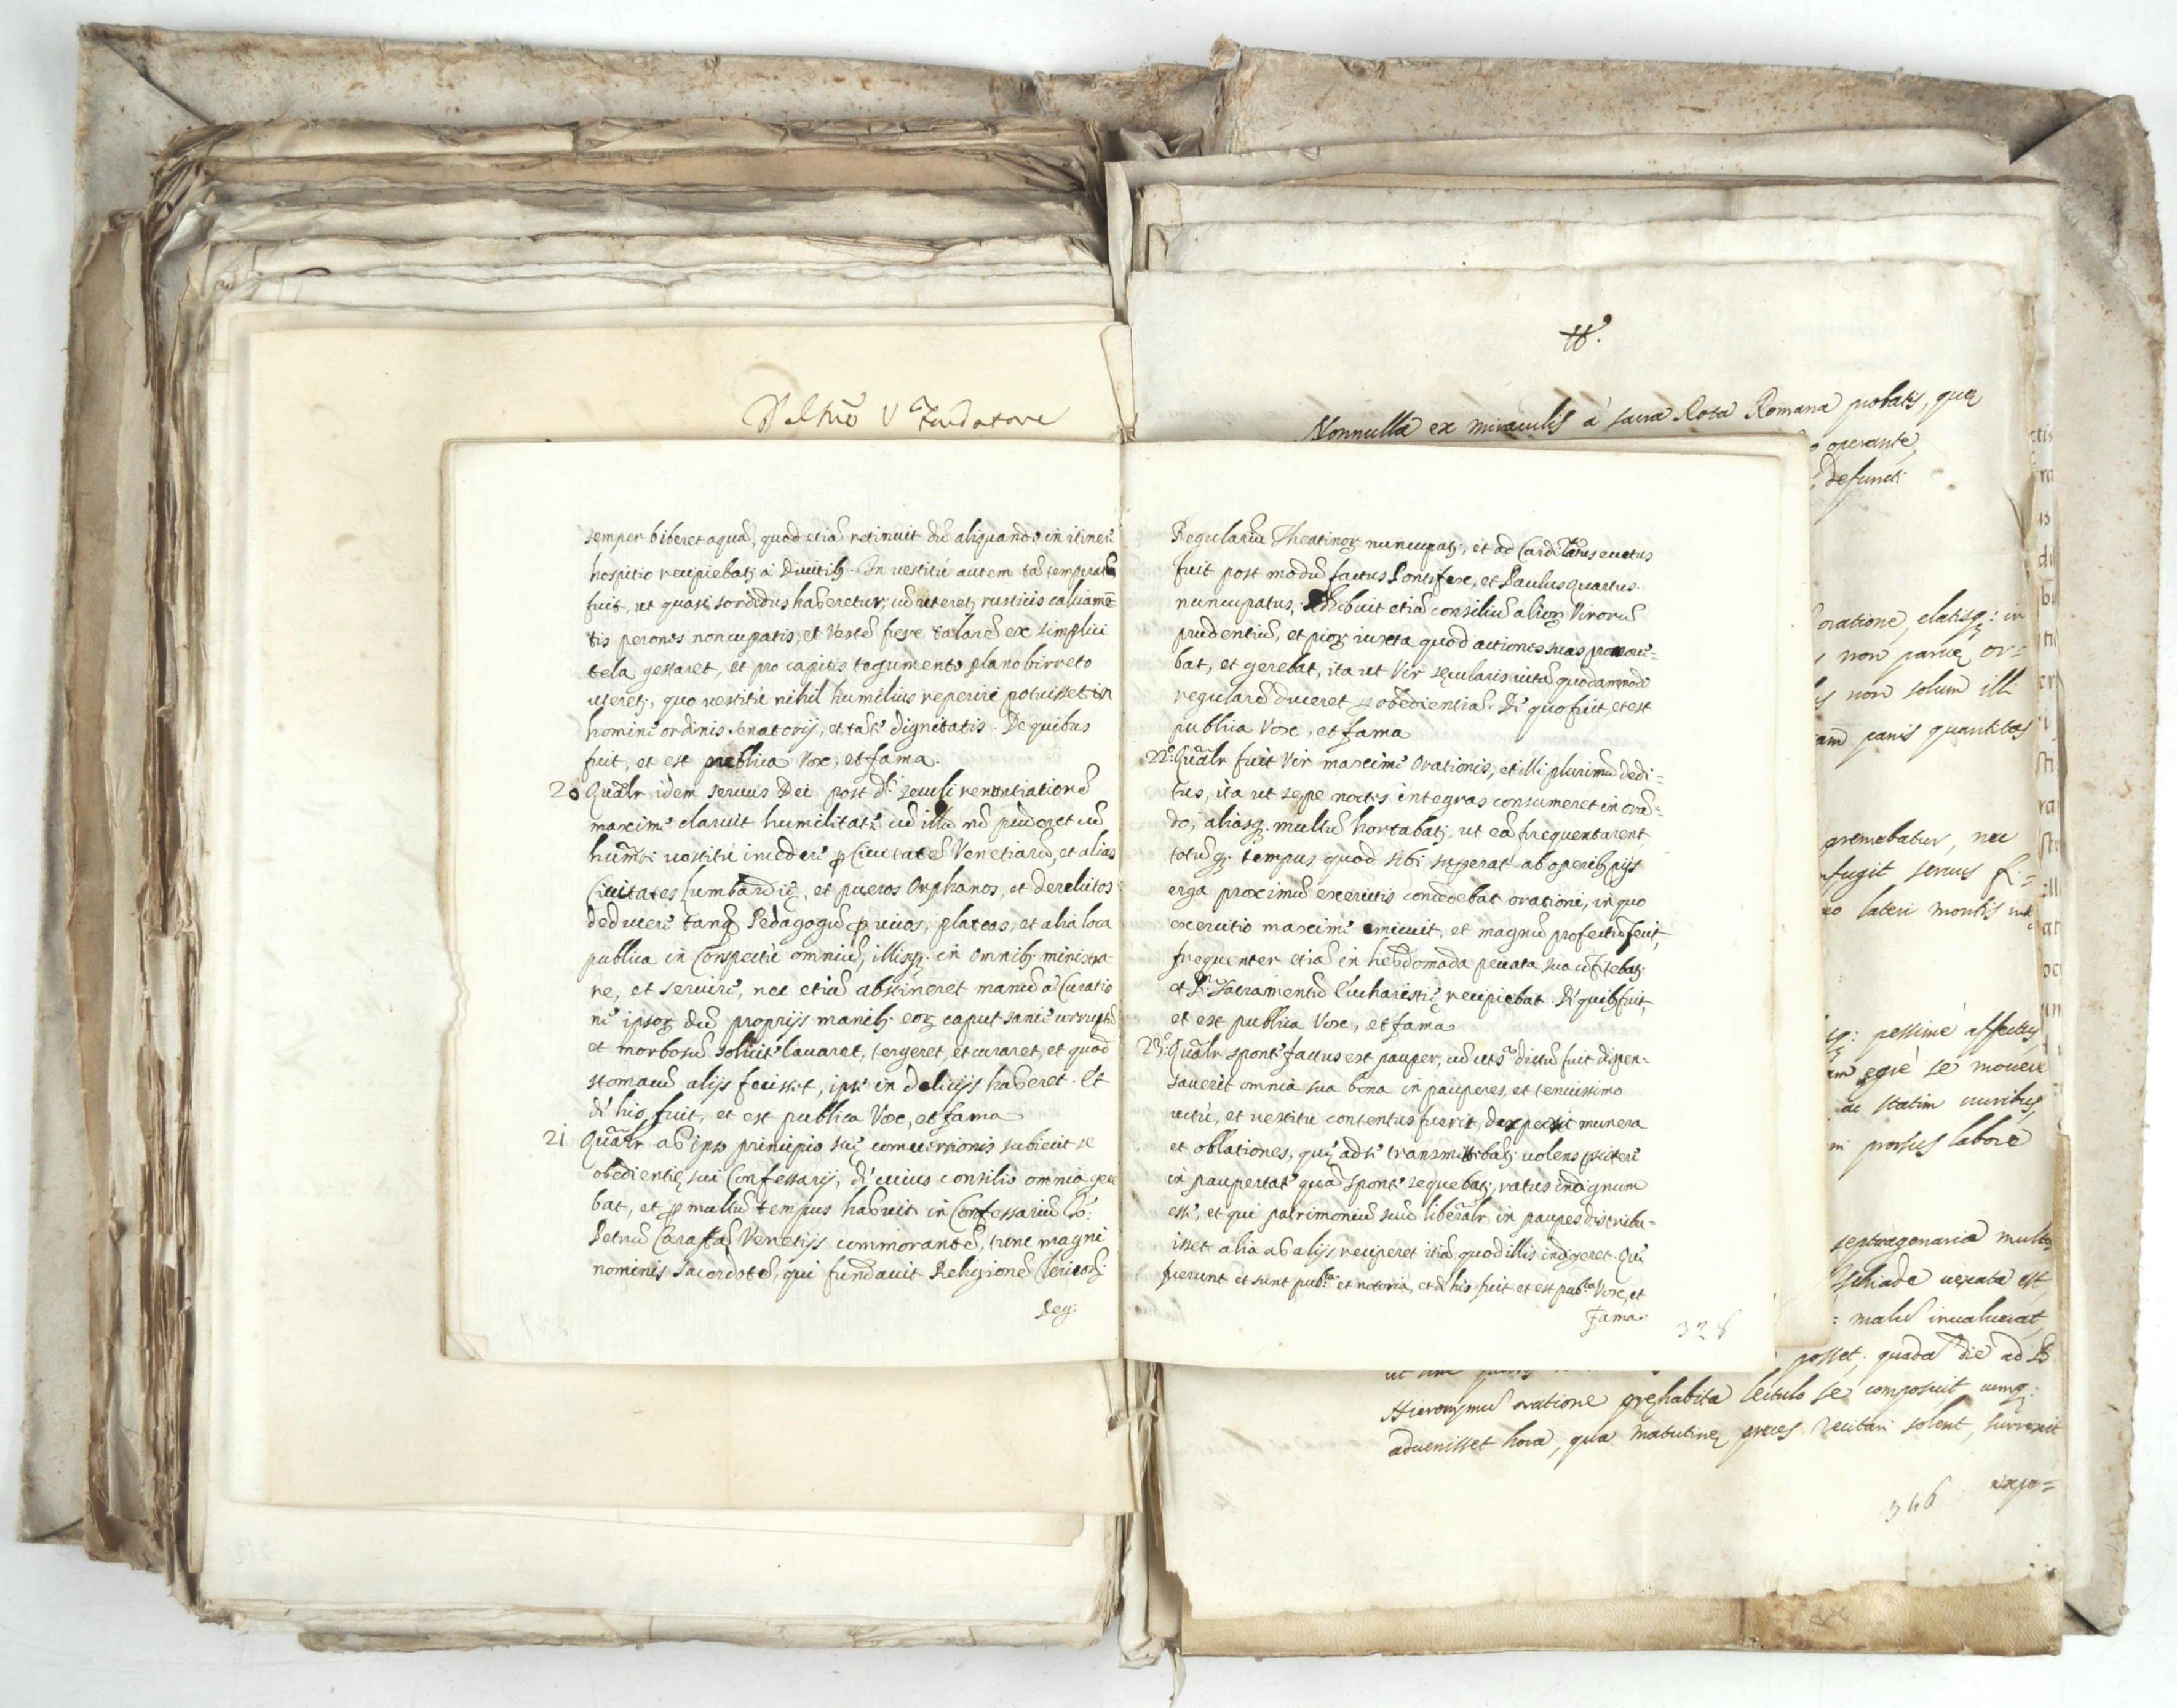 Del Nro V Fundatore
semper biberet aquã, quod etiã retinuit dũ aliquando in itinere
hospitio recipiebatʒ à Divitibʒ. In vestitu autem tã temperatus
fuit, ut quasi sordidus haberetur, cũ uteretʒ rusticis calciamẽ-
tis perones noncupatis, et Vestẽ fere talarẽ ex simplici
tela gestaret, et pro capitis tegumento plano birreto
uteretʒ, quo vestitu nihil humilius reperiri potuisset in
homine ordinis senatorij, et tãte dignitatis. De quibus
fuit, et est publica Vox, et fama.
20 Quãlr idem servus Dei post dti seculi renuntiationẽ
maxime claruit humilitate cũ illũ nõ puderet cũ
humĩli vestitu incedere ꝑ Civitatẽ Venetiarũ, et alias
Civitates Lumbardię, et pueros Orphanos, et derelictos
deducere tanq̃ Pedagogũ ꝑ vicos, plateas, et alia loca
publica in Conspectu omniũ, illisqʒ in omnibʒ ministra-
re, et servire, nec etiã abstineret manũ à Curatio
ne ipsoꝝ dũ proprijs manibʒ eoꝝ caput sanie corruptũ
et morbosũ solicite lavaret, tergeret, et curaret, et quod
stomacũ alijs fecisset, ipse in delicijs haberet. Et
de his fuit, et est publica Vox, et fama
21 Quãlr ab ipso principio suę conversionis subiecit se
obedientię sui Confessarij, de cuius consilio omnia gere
bat, et ꝑ multũ tempus habuit in Confessariũ
Petrũ Carafã Venetijs commorantẽ, tunc magni
nominis Sacerdotẽ, qui fundavit Religionẽ Clericoꝝ
Reg:
Regulariũ Theatinoꝝ nuncupatʒ, et ad Cardilatus evectus
fuit post modũ factus Pontifex, et Paulus Quartus
nuncupatus, Adhibuit etiã consiliũ alioꝝ Virorũ
prudentiũ, et pioꝝ iuxta quod actiones suas promove=
bat, et gerebat, ita ut Vir sęcularis vitã quodammodo
regularẽ duceret ꝑ obedientiã. De quo fuit, et est
publica Vox, et fama
22. Quãlr fuit Vir maxime Orationis, et illi plurimũ dedi=
tus, ita ut sępe noctes integras consumeret in orã-
do, aliosqʒ multũ hortabatʒ, ut eã frequentarent
totũqʒ tempus quod sibi supererat ab operibʒ pijs
erga proximũ exercitis concedebat orationi, in quo
exercitio maxime emicuit, et magnũ profectũ fecit,
frequenter etiã in hebdomada peccata sua cõfitebatʒ
et Sm. Sacramentũ Eucharistię recipiebat. De quibʒ fuit,
et est publica Vox, et fama
23. Quãlr sponte factus est pauper, cũ ut sa dictũ fuit dispen-
saverit omnia sua bona in pauperes, et tenuissimo
victu, et vestitu contentus fuerit, despexit munera
et oblationes, quę ad se transmittebatʒ volens ꝑsistere
in paupertate quã sponte sequebatʒ, ratus indignum
esse, et qui patrimoniũ suũ liberãlr in paupes distribu-
isset alia ab alijs reciperet etiã quod illis indigeret. Quę
fuerunt et sunt pubca et notoria, et de his fuit et est pubca Vox, et
Fama.
328
Nonnulla ex miraculis à sacra Rota Romana probatis, quę
operante
defuncti
oratione, elatisqʒ: in
non parvę or=
non solum illi
panis quantitas
premebatur, nec
fugit servus
lateri montis
pessimè affectus
egrè se movere
ac statim viribus
prorsus labore
septuagenaria multos
vexata est
malũ invaluerat
posset. quadã die ad B
Hieronymũ oratione pręhabita lectulo se composuit, cumqʒ:
advenisset hora, qua matutinę preces recitari solent, surrexit
expe=
346